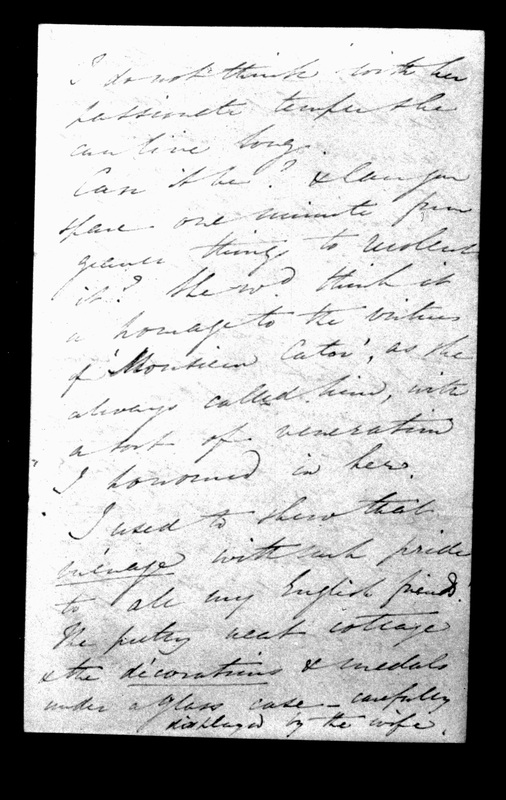 I do not think with her
passionate temper she
can live long.
Can it be? & can you
spare one minute from
graver things to
it? She wd. think it
a homage to the virtues
of 'Monsieur Cator', as she
always called him, with
a sort of veneration
I honoured in her.
I used to shew that
ménage with such pride
to all my English friends.
The pretty neat cottage
& the décorations & medals
under a glass case – carefully
displayed by the wife.